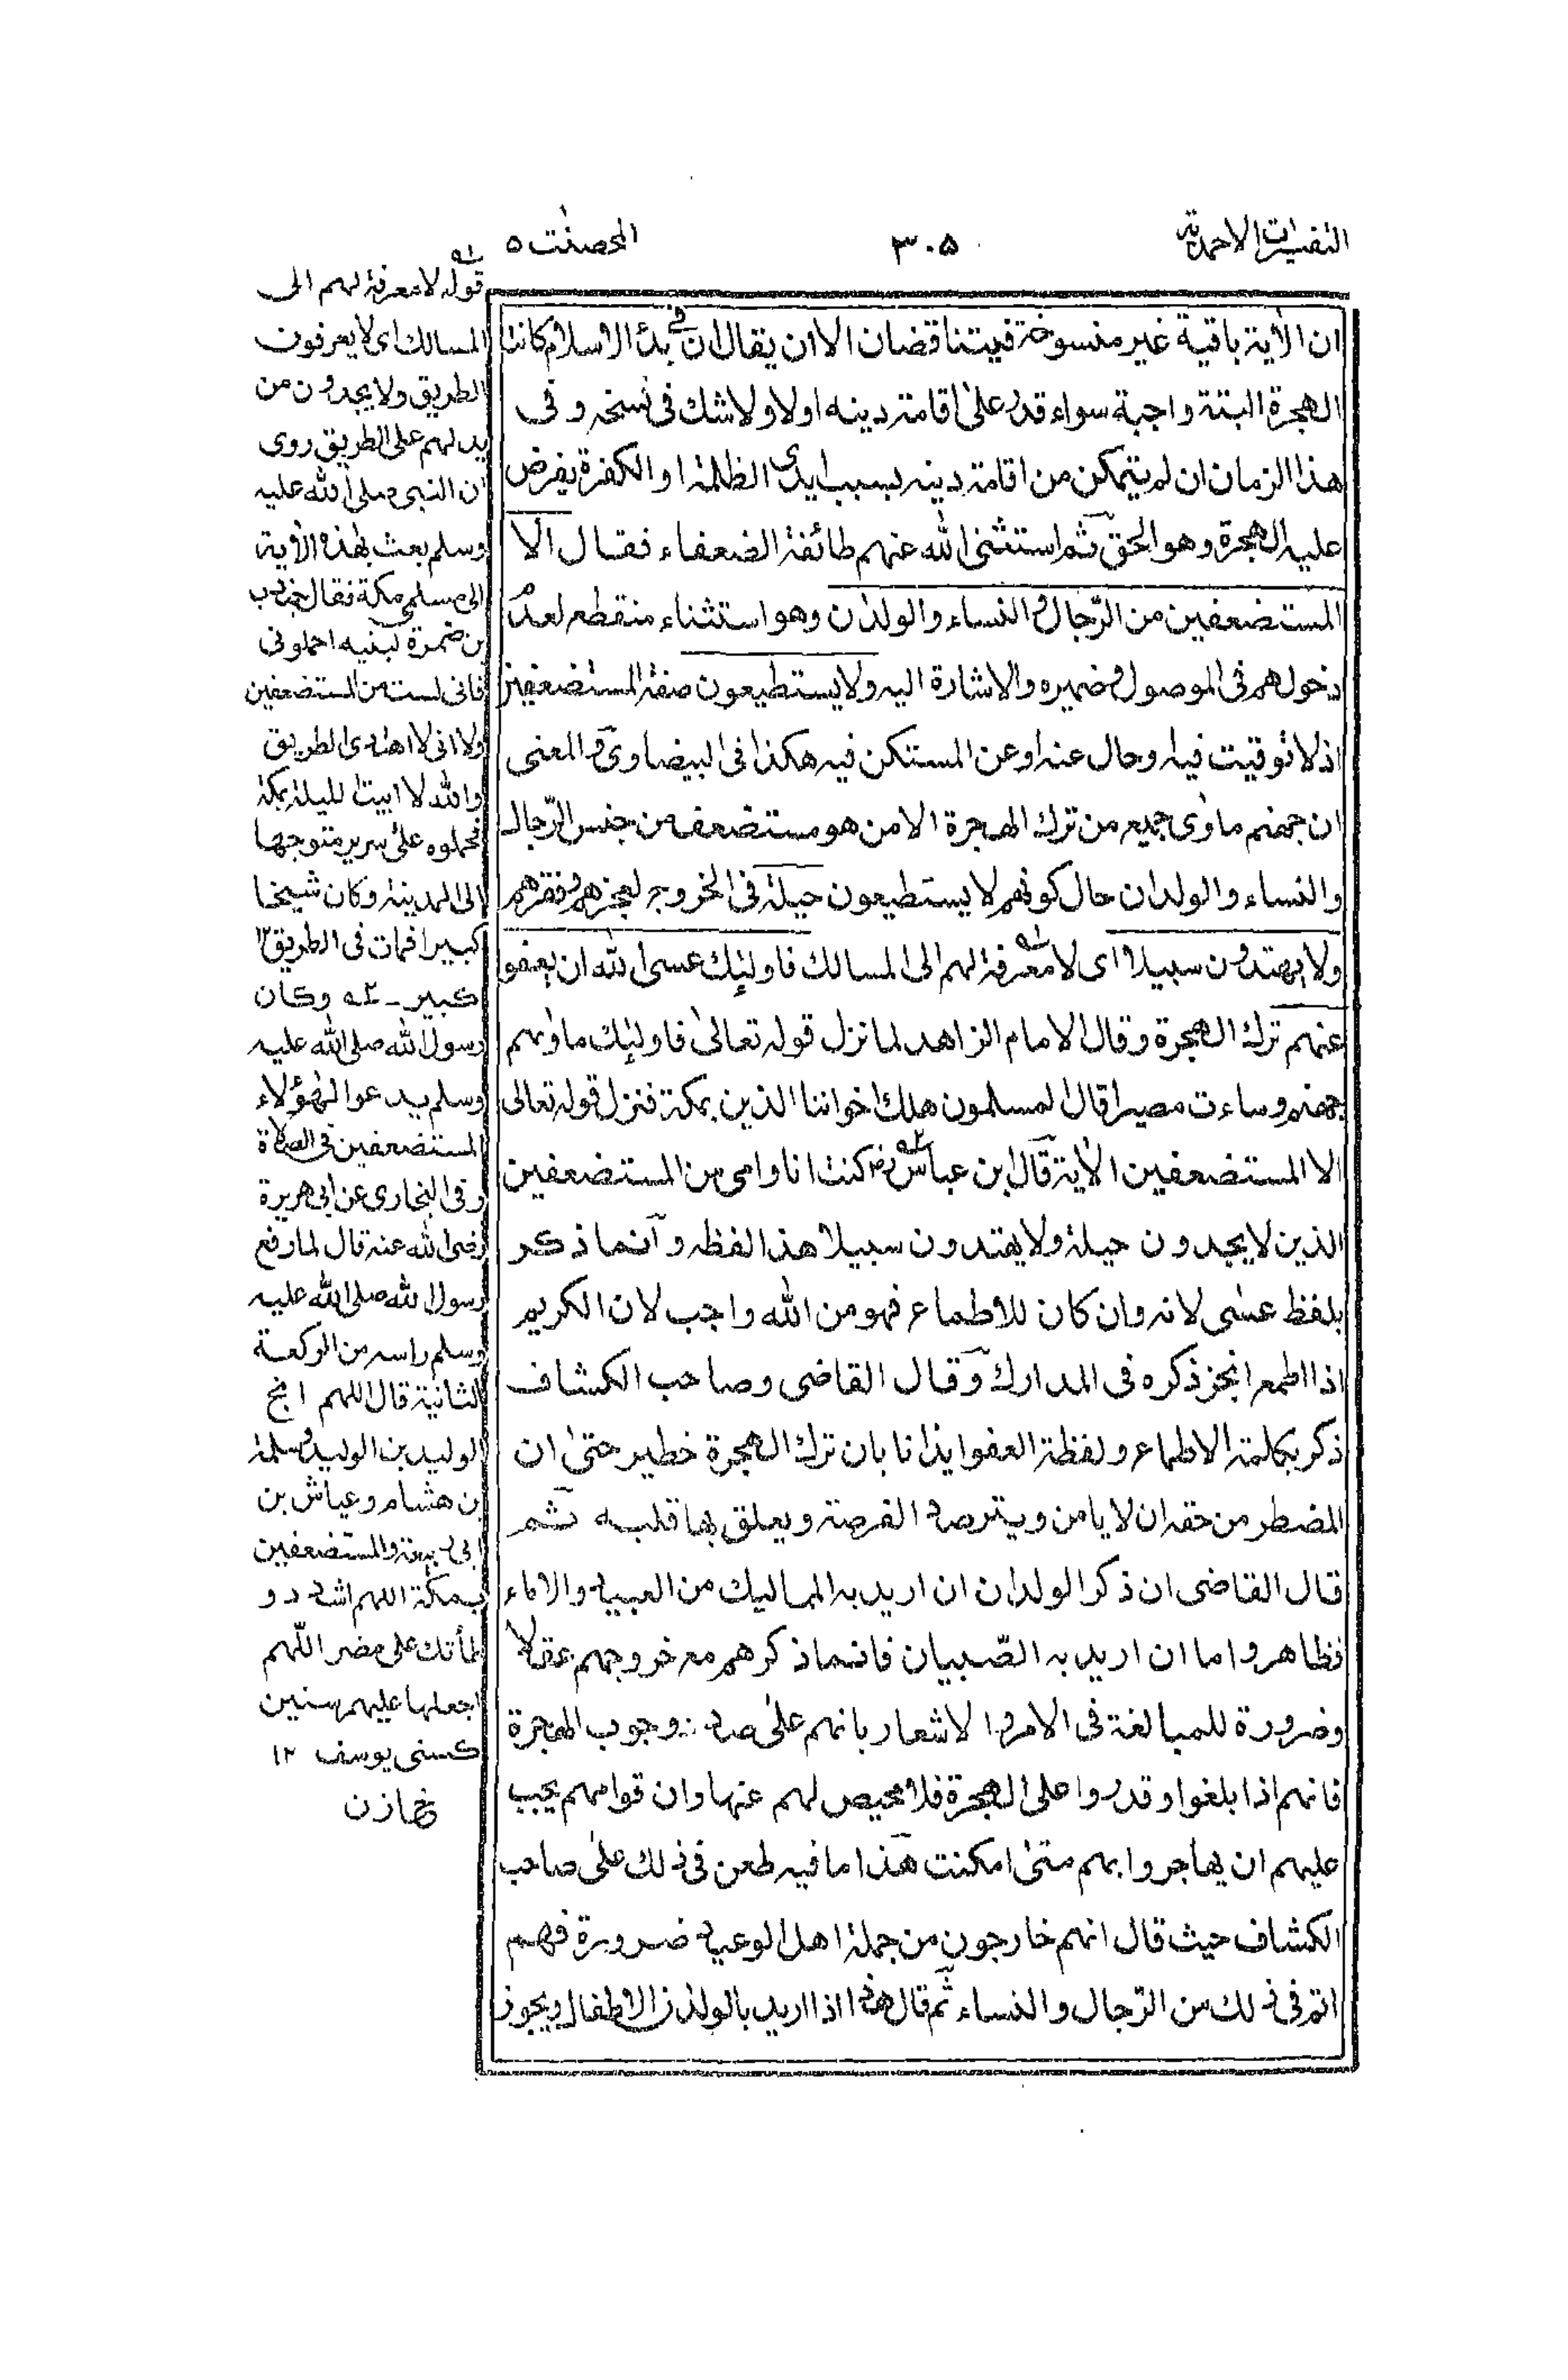 التفسيرات الاحمدية
٣٠٥
المحصنٰت ٥
ان الاٰية باقية غير منسوخة فيتناقضان الا ان يقال ان في بدأ الاسلام كانت
الهجرة البتة واجبة سواء قدر علىٰ اقامة دينه اولا ولا شك فى نسخه وفى
هذا الزمان ان لم يتمكن من اقامة دينه بسبب ايدى الظلمة او الكفرة يفرض
عليه الهجرة وهو الحق ثم استثنى الله عنهم طائفة الضعفاء فقال الا
المستضعفين من الرّجال والنساء والولدٰن وهو استثناء منقطع لعدم
دخولهم فى الموصول وضميره والاشارة اليه ولا يستطيعون صفة المستضعفين
اذ لا توقيت فيه وحال عنه او عن المستكن فيه هكذا فى البيضاوى والمعنى
ان جهنم ماوٰى جميع من ترك الهجرة الا من هو مستضعف من جنس الرّجال
والنساء والولدان حال كونهم لا يستطيعون حيلة فى الخروج لعجزهم وفقرهم
ولا يهتدون سبيلا اى لا معرفة لهم الى المسالك فاولٰئك عسى الله ان يعفو
عنهم ترك الهجرة وقال الامام الزاهد لما نزل قوله تعالىٰ فاولٰئك ماوٰىهم
جهنم وساءت مصيرا قال المسلمون هلك اخواننا الذين بمكة فنزل قوله تعالى
الا المستضعفين الاٰية قال ابن عباس رضـ كنت انا وامى من المستضعفين
الذين لا يجدون حيلة ولا يهتدون سبيلا هذا لفظه وانما ذكر
بلفظ عسٰى لانه وان كان للاطماع فهو من الله واجب لان الكريم
اذا اطمع انجز ذكره فى المدارك وقال القاضى وصاحب الكشاف
ذكر بكلمة الاطماع ولفظة العفو ايذانا بان ترك الهجرة خطير حتىٰ ان
المضطر من حقه ان لا يامن ويترصد الفرصة ويعلق بها قلبه ثم
قال القاضى ان ذكر الولدان ان اريد به المماليك من العبيد والاماء
فظاهر واما ان اريد به الصّبيان فانما ذكرهم مع خروجهم عقلا
وضرورة للمبالغة فى الامر والاشعار بانهم علىٰ صدد وجوب الهجرة
فانهم اذا بلغوا وقدروا على الهجرة فلا محيص لهم عنها وان قوامهم يجب
عليهم ان يهاجروا بهم متىٰ امكنت هذا ما فيه طعن فى ذلك علىٰ صاحب
الكشاف حيث قال انهم خارجون من جملة اهل الوعيد ضرورة فهم
اتم فى ذلك من الرّجال والنساء ثم قال هذا اذا اريد بالولدٰن الاطفال ويجوز
قوله لا معرفة لهم الى
المسالك اى لا يعرفون
الطريق ولا يجدون من
يدلهم على الطريق روى
ان النبى صلى الله عليه
وسلم بعث بهذه الاٰية
الى مسلمى مكة فقال جندب
بن ضمرة لبنيه احملونى
فانى لست من المستضعفين
ولا انى لا اهتدى الطريق
والله لا ابيت الليلة بمكة
فحملوه علىٰ سرير متوجها
الى المدينة وكان شيخا
كبيرا فمات فى الطريق ١٢
كبير ـ ٢ه وكان
رسول الله صلى الله عليه
وسلم يدعو لهٰؤلاء
المستضعفين فى الصلاة
وفى البخارى عن ابى هريرة
رضى الله عنه قال لما رفع
رسول الله صلى الله عليه
وسلم راسه من الركعة
الثانية قال اللهم انج
الوليد بن الوليد وسلمة
بن هشام وعياش بن
ابى ربيعة والمستضعفين
بمكة اللهم اشدد و
طأتك على مضر اللّهم
اجعلها عليهم سنين
كسنى يوسف ١٢
خازن